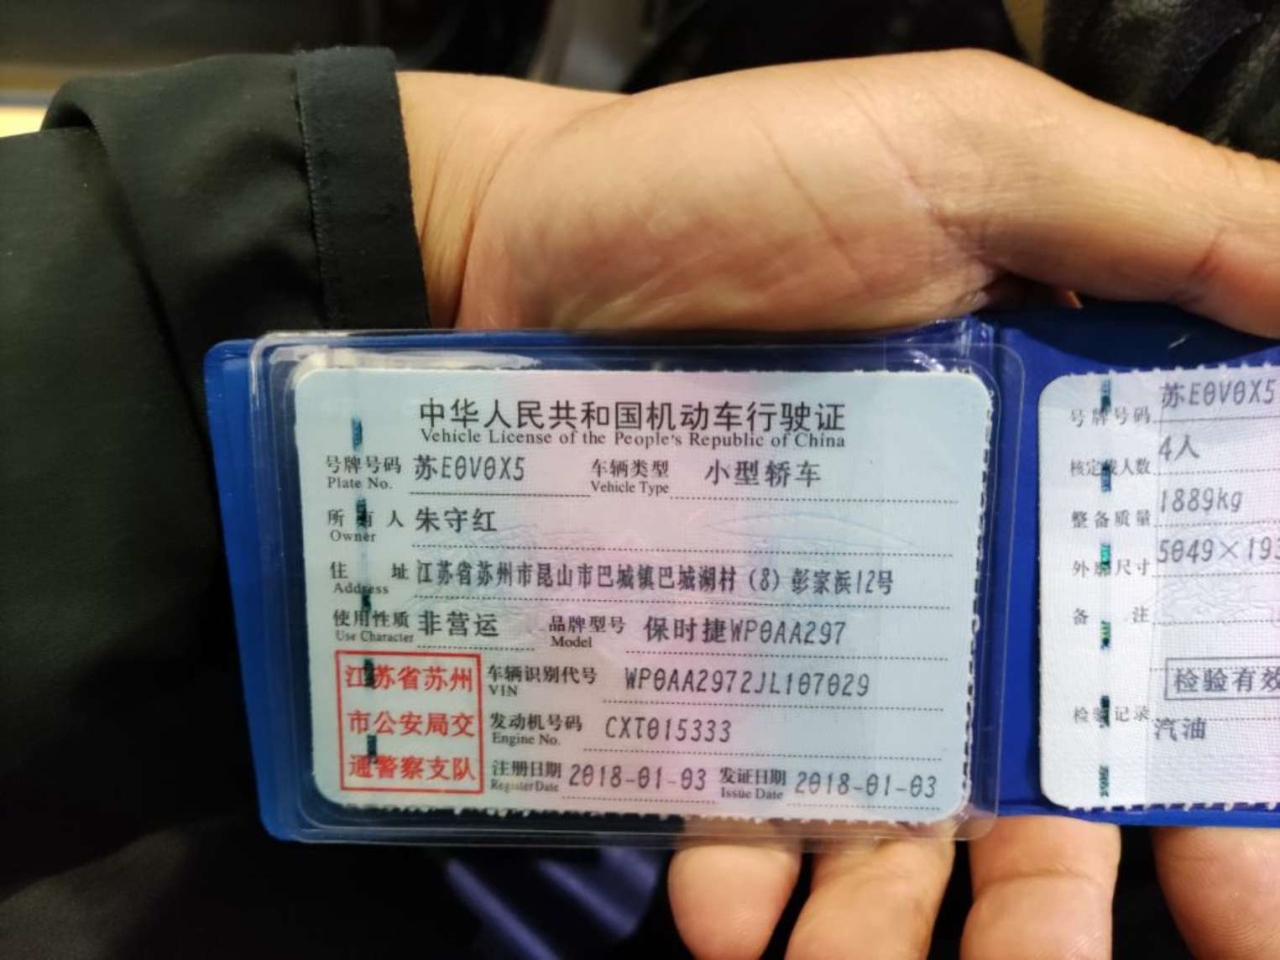 中华人民共和国机动车行驶证
Vehicle License of the People's Republic of China
号牌号码 苏E0V0X5 车辆类型 小型轿车
Plate No. Vehicle Type
所有人 朱守红
Owner
住址 江苏省苏州市昆山市巴城镇巴城湖村(8)彭家浜12号
Address
使用性质 非营运 品牌型号 保时捷WP0AA297
Use Character Model
江苏省苏州
市公安局交
通警察支队
车辆识别代号 WP0AA2972JL107029
VIN
发动机号码 CXT015333
Engine No.
注册日期 2018-01-03 发证日期 2018-01-03
Register Date Issue Date
号牌号码 苏E0V0X5
核定载人数 4人
整备质量 1889kg
外廓尺寸 5049×193
备注
检验有效
检验记录
汽油